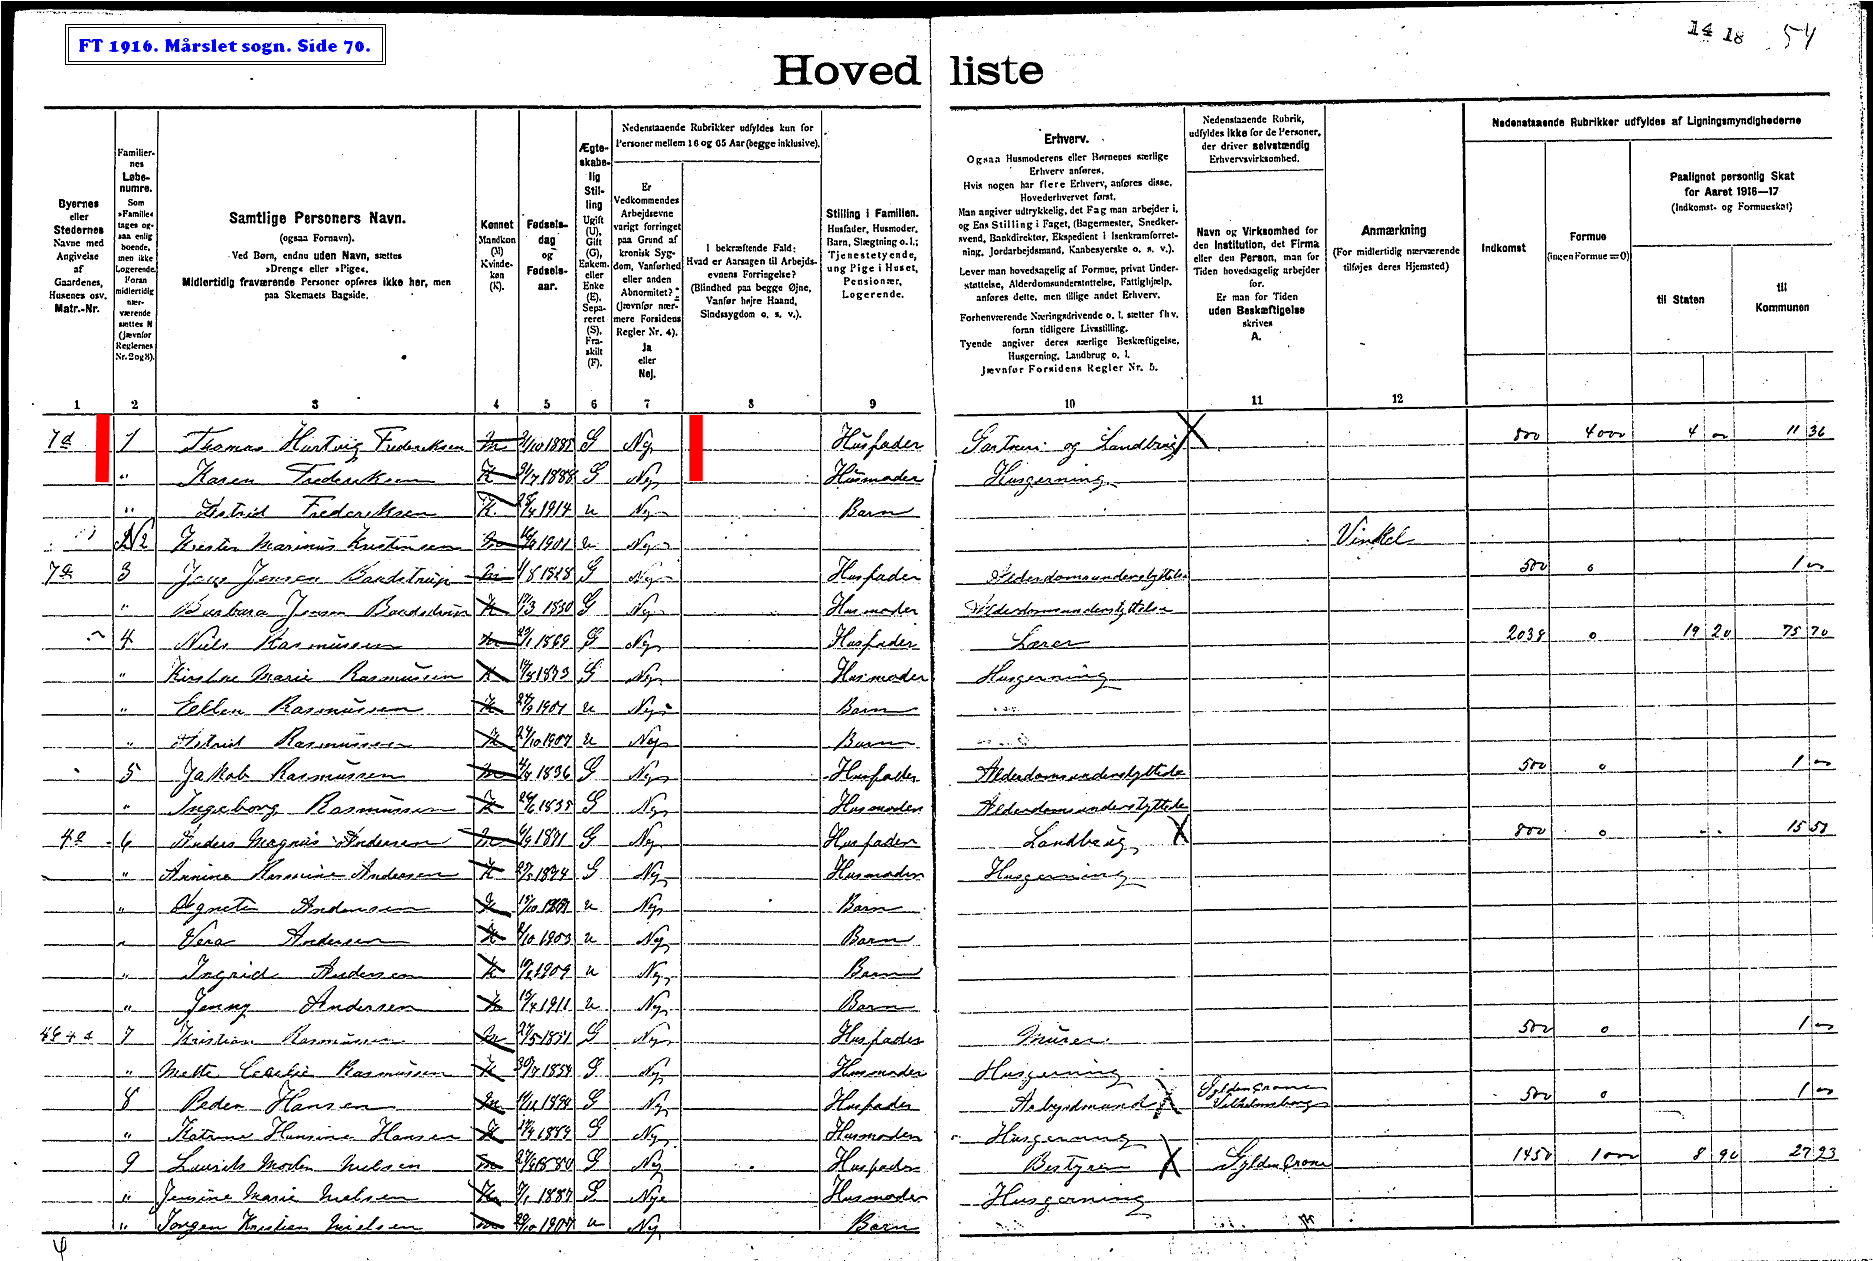 FT 1916. Mårslet sogn. Side 70.
14 18 54
Hovedliste
Byernes eller Stedernes Navne med Angivelse af Gaardenes, Husenes osv. Matr.-Nr.
Familiernes Løbenumre. Som »Familie« tages ogsaa enlig boende, men ikke Logerende. Foran midlertidig nærværende sættes N (Jævnfør Reglernes Nr. 2 og 8).
Samtlige Personers Navn.
(ogsaa Fornavn).
Ved Børn, endnu uden Navn, sættes »Dreng« eller »Pige«.
Midlertidig fraværende Personer opføres ikke her, men paa Skemaets Bagside.
Kønnet Mandkøn (M) Kvindekøn (K).
Fødselsdag og Fødselsaar.
Ægteskabelig Stilling Ugift (U), Gift (G), Enkem. eller Enke (E), Separeret (S), Fraskilt (F).
Nedenstaaende Rubrikker udfyldes kun for Personer mellem 16 og 65 Aar (begge inklusive).
Er Vedkommendes Arbejdsevne varigt forringet paa Grund af kronisk Sygdom, Vanførhed eller anden Abnormitet? (Jævnfør nærmere Forsidens Regler Nr. 4). Ja eller Nej.
I bekræftende Fald: Hvad er Aarsagen til Arbejdsevnens Forringelse? (Blindhed paa begge Øjne, Vanfør højre Haand, Sindssygdom o. s. v.).
Stilling i Familien. Husfader, Husmoder, Barn, Slægtning o.l.; Tjenestetyende, ung Pige i Huset, Pensionær, Logerende.
Erhverv.
Ogsaa Husmoderens eller Børnenes særlige Erhverv anføres.
Hvis nogen har flere Erhverv, anføres disse. Hovederhvervet først.
Man angiver udtrykkelig, det Fag man arbejder i, og Ens Stilling i Faget, (Bagermester, Snedkersvend, Bankdirektør, Ekspedient i Isenkramforretning, Jordarbejdsmand, Kaabesyerske o. s. v.).
Lever man hovedsagelig af Formue, privat Understøttelse, Alderdomsunderstøttelse, Fattighjælp, anføres dette, men tillige andet Erhverv.
Forhenværende Næringsdrivende o. l. sætter fhv. foran tidligere Livsstilling.
Tyende angiver deres særlige Beskæftigelse, Husgerning, Landbrug o. l.
Jævnfør Forsidens Regler Nr. 5.
Nedenstaaende Rubrik, udfyldes ikke for de Personer, der driver selvstændig Erhvervsvirksomhed.
Navn og Virksomhed for den Institution, det Firma eller den Person, man for Tiden hovedsagelig arbejder for.
Er man for Tiden uden Beskæftigelse skrives A.
Anmærkning
(For midlertidig nærværende tilføjes deres Hjemsted)
Nedenstaaende Rubrikker udfyldes af Ligningsmyndighederne
Indkomst
Formue (ingen Formue=0)
Paalignet personlig Skat for Aaret 1916—17 (Indkomst- og Formueskat)
til Staten
til Kommunen
1 2 3 4 5 6 7 8 9 10 11 12
7d 1 Thomas Hartvig Frederiksen M 1885 G Nej Husfader Gartneri og Landbrug 800 4000 4 00 11 36
" Karen Frederiksen K 1888 G Nej Husmoder Husgerning
" Astrid Frederiksen K 1914 u Nej Barn
N 2 Kresten Marinus Kristensen M 1901 u Nej Vinkel
3 Jens Jensen Baadstrup M 1828 G Nej Husfader Alderdomsunderstyttelse 500 0 1 00
" Barbara Jensen Baadstrup K 1830 G Nej Husmoder Alderdomsunderstyttelse
4 Niels Rasmussen M 1869 G Nej Husfader Lærer 2038 0 19 20 75 70
" Kirstine Marie Rasmussen K 1873 G Nej Husmoder Husgerning
" Ellen Rasmussen K 1901 u Nej Barn
" Astrid Rasmussen K 1907 u Nej Barn
5 Jakob Rasmussen M 1836 G Nej Husfader Alderdomsunderstyttelse 500 0 1 00
" Ingeborg Rasmussen K 1835 G Nej Husmoder Alderdomsunderstyttelse
6 Anders Magnus Andersen M 1871 G Nej Husfader Landbrug 800 0 15 51
" Annine Rasmine Andersen K 1874 G Nej Husmoder Husgerning
" Agnete Andersen K u Nej Barn
" Vera Andersen K 1903 u Nej Barn
" Ingrid Andersen K 1909 u Nej Barn
" Jenny Andersen K 1911 u Nej Barn
7 Kristian Rasmussen M G Nej Husfader Murer 500 0 1 00
" Mette Cecilie Rasmussen K 1854 G Nej Husmoder Husgerning
8 Peder Hansen M G Nej Husfader Arbejdsmand Gyldenkrone Vilhelmsborg 500 0 1 00
" Katrine Hansine Hansen K G Nej Husmoder Husgerning
9 Laurids Nielsen M 1880 G Nej Husfader Bestyrer Gyldenkrone 1450 1000 8 90 27 23
" Jensine Marie Nielsen K 1887 G Nej Husmoder Husgerning
" Jørgen Kristian Nielsen M 1907 u Nej Barn